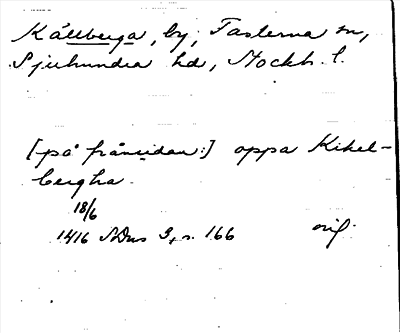 Källberga, by, Fasterna sn,
Sjuhundra hd, Stockh. l.
[på frånsidan:] oppa Kikel-
bergha
18/6
1416 SDns 3, s. 166 orig.